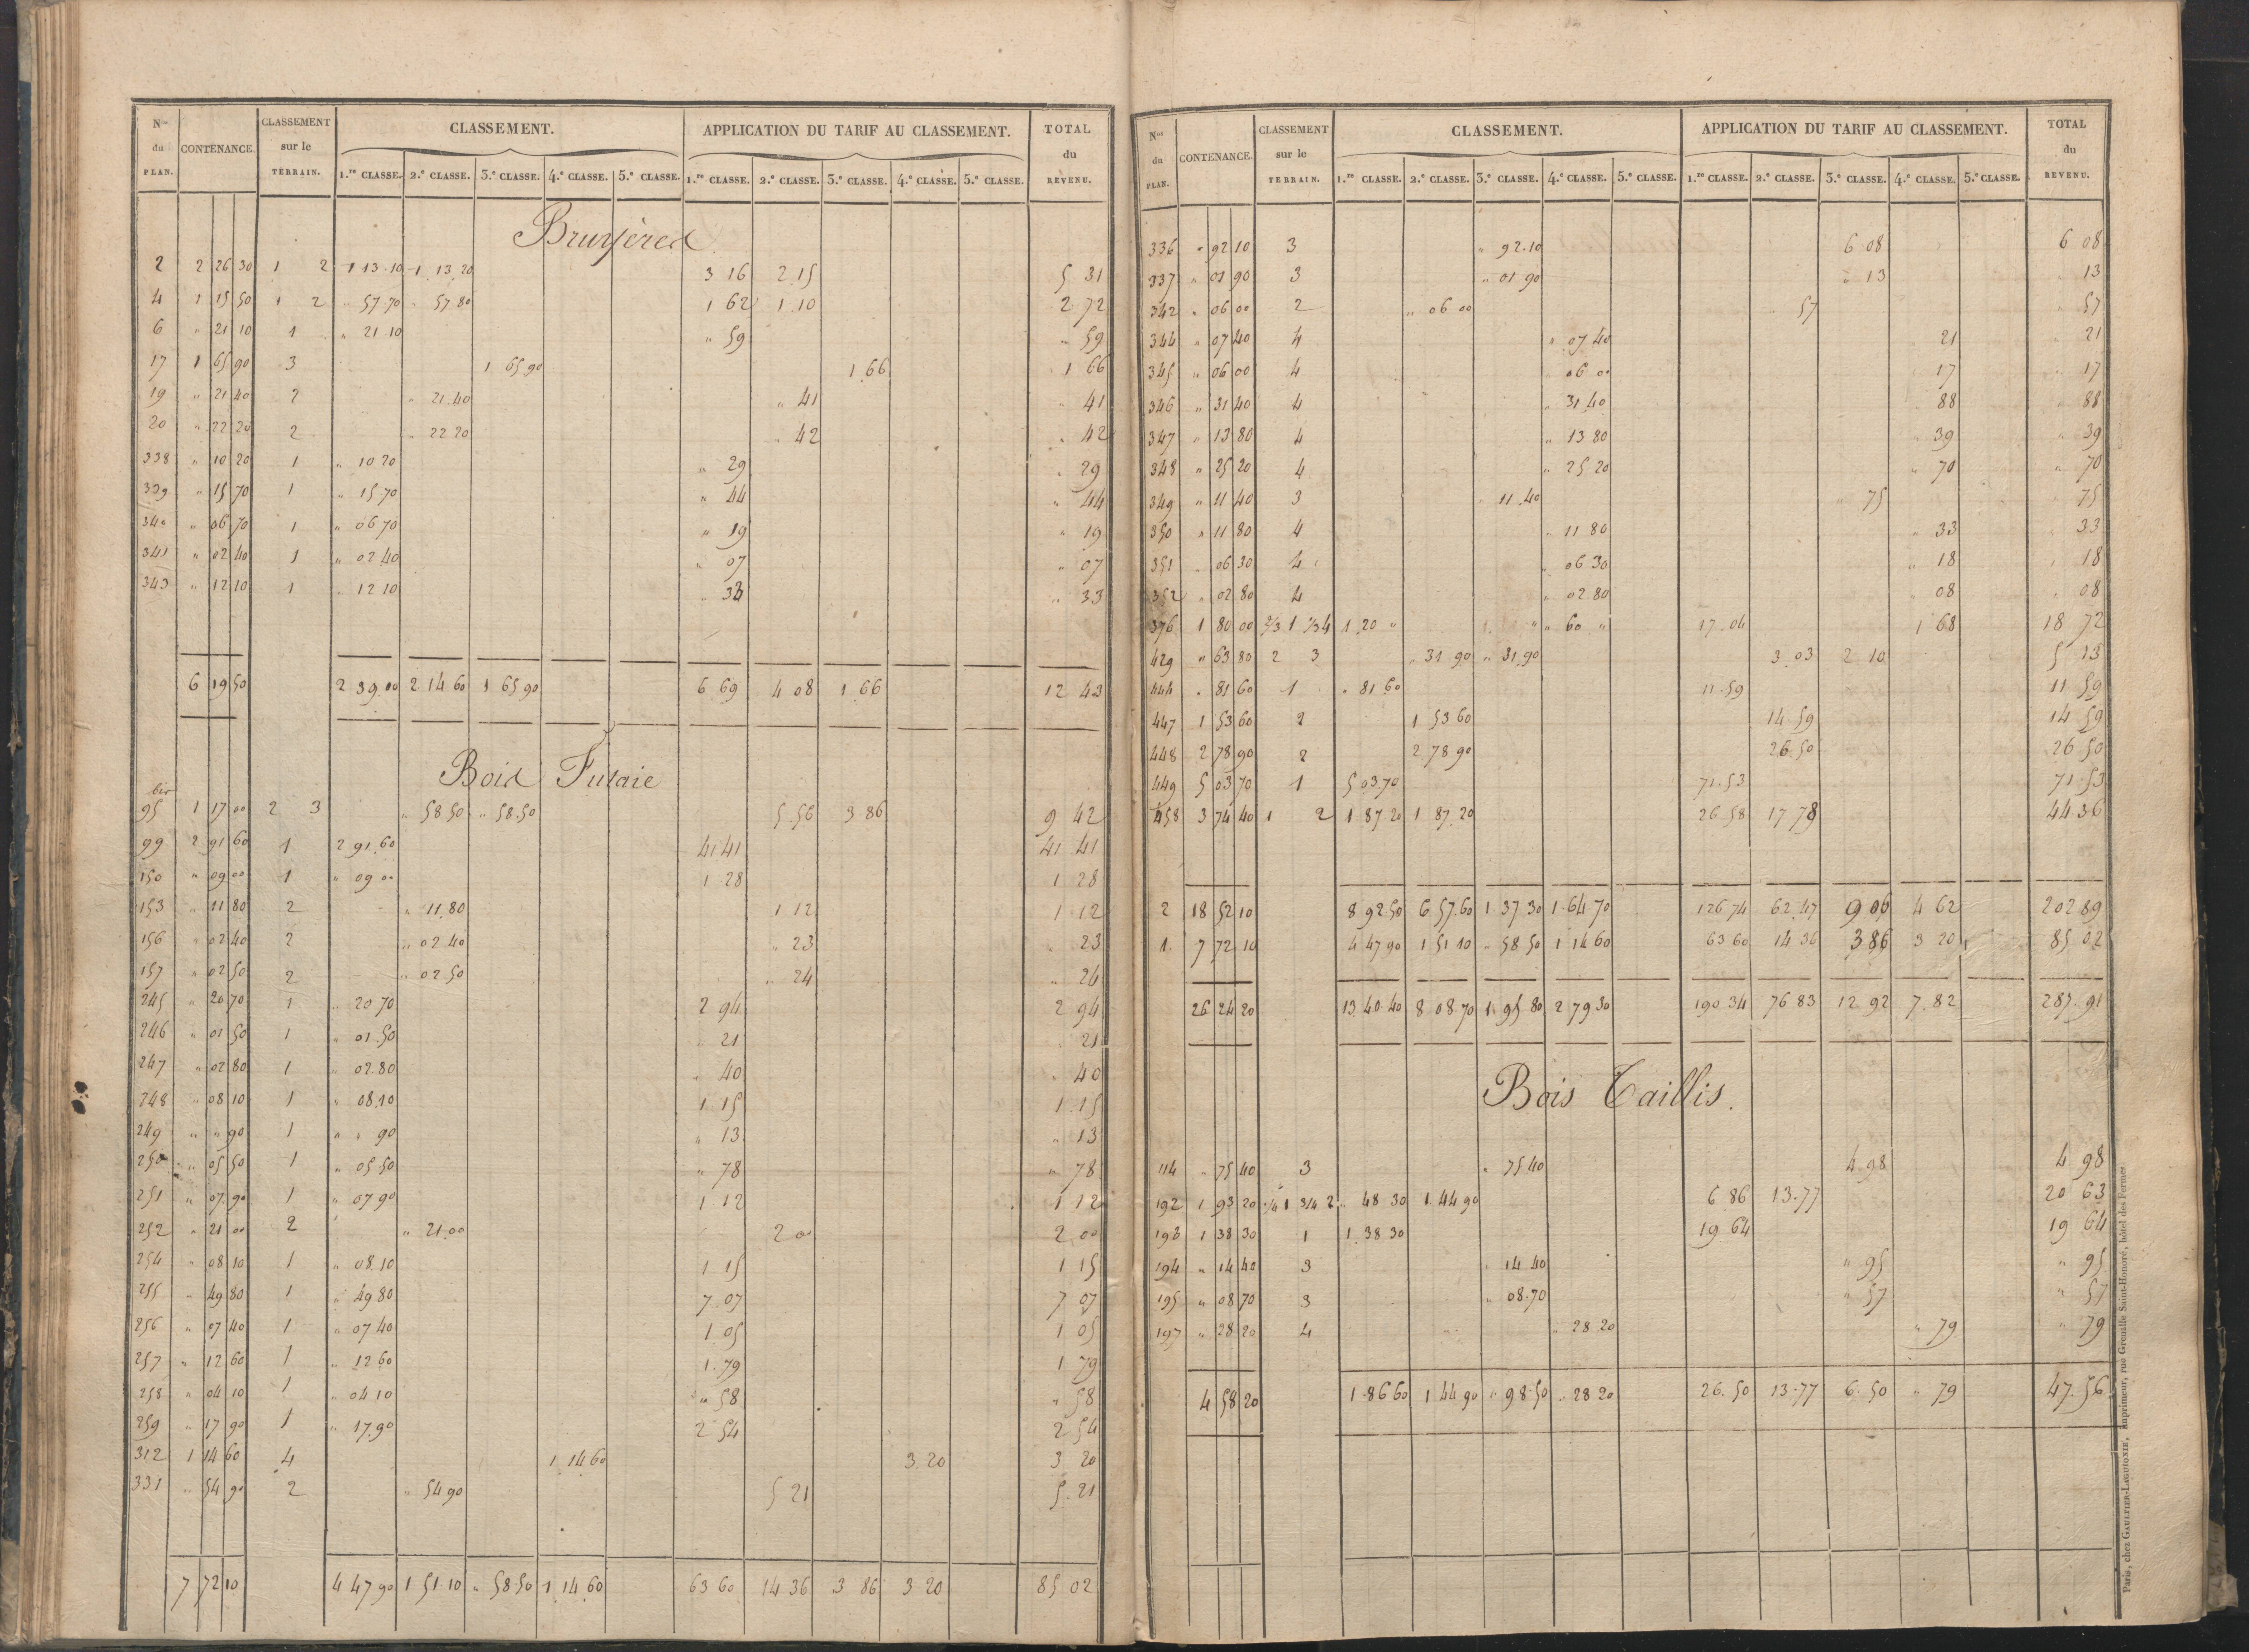 Nos du PLAN. CONTENANCE. CLASSEMENT sur le TERRAIN. CLASSEMENT. APPLICATION DU TARIF AU CLASSEMENT. TOTAL du REVENU.
1.re CLASSE. 2.e CLASSE. 3.e CLASSE. 4.e CLASSE. 5.e CLASSE. 1.re CLASSE. 2.e CLASSE. 3.e CLASSE. 4.e CLASSE. 5.e CLASSE.
Bruyères
2 2 26 30 1 2 1 13 10 1 13 20 3 16 2 15 5 31
4 1 15 50 1 2 " 57 70 " 57 80 1 62 1 10 2 72
6 " 21 10 1 " 21 10 " 59 " 59
17 1 65 90 3 1 65 90 1 66 1 66
19 " 21 40 2 " 21 40 " 41 " 41
20 " 22 20 2 " 22 20 " 42 " 42
338 " 10 20 1 " 10 20 " 29 " 29
339 " 15 70 1 " 15 70 " 44 " 44
340 " 06 70 1 " 06 70 " 19 " 19
341 " 02 40 1 " 02 40 " 07 " 07
343 " 12 10 1 " 12 10 " 33 " 33
6 19 50 2 39 00 2 14 60 1 65 90 6 69 4 08 1 66 12 43
Bois Futaie
bis
95 1 17 00 2 3 " 58 50 " 58 50 5 56 3 86 9 42
99 2 91 60 1 2 91 60 41 41 41 41
150 " 09 00 1 " 09 00 1 28 1 28
153 " 11 80 2 " 11 80 1 12 1 12
156 " 02 40 2 " 02 40 " 23 " 23
157 " 02 50 2 " 02 50 " 24 " 24
245 " 20 70 1 " 20 70 2 94 2 94
246 " 01 50 1 " 01 50 " 21 " 21
247 " 02 80 1 " 02 80 " 40 " 40
248 " 08 10 1 " 08 10 1 15 1 15
249 " " 90 1 " " 90 " 13 " 13
250 " 05 50 1 " 05 50 " 78 " 78
251 " 07 90 1 " 07 90 1 12 1 12
252 " 21 00 2 " 21 00 2 00 2 00
254 " 08 10 1 " 08 10 1 15 1 15
255 " 49 80 1 " 49 80 7 07 7 07
256 " 07 40 1 " 07 40 1 05 1 05
257 " 12 60 1 " 12 60 1 79 1 79
258 " 04 10 1 " 04 10 " 58 " 58
259 " 17 90 1 " 17 90 2 54 2 54
312 1 14 60 4 1 14 60 3 20 3 20
331 " 54 90 2 " 54 90 5 21 5 21
7 72 10 4 47 90 1 51 10 " 58 50 1 14 60 63 60 14 36 3 86 3 20 85 02
Nos du PLAN. CONTENANCE. CLASSEMENT sur le TERRAIN. CLASSEMENT. APPLICATION DU TARIF AU CLASSEMENT. TOTAL du REVENU.
1.re CLASSE. 2.e CLASSE. 3.e CLASSE. 4.e CLASSE. 5.e CLASSE. 1.re CLASSE. 2.e CLASSE. 3.e CLASSE. 4.e CLASSE. 5.e CLASSE.
336 " 92 10 3 " 92 10 6 08 6 08
337 " 01 90 3 " 01 90 " 13 " 13
342 " 06 00 2 " 06 00 " 57 " 57
344 " 07 40 4 " 07 40 " 21 " 21
345 " 06 00 4 " 06 00 " 17 " 17
346 " 31 40 4 " 31 40 " 88 " 88
347 " 13 80 4 " 13 80 " 39 " 39
348 " 25 20 4 " 25 20 " 70 " 70
349 " 11 40 3 " 11 40 " 75 " 75
350 " 11 80 4 " 11 80 " 33 " 33
351 " 06 30 4 " 06 30 " 18 " 18
352 " 02 80 4 " 02 80 " 08 " 08
376 1 80 00 2/3 1 1/3 4 1 20 " " 60 " 17 04 1 68 18 72
429 " 63 80 2 3 " 31 90 " 31 90 3 03 2 10 5 13
444 " 81 60 1 " 81 60 11 59 11 59
447 1 53 60 2 1 53 60 14 59 14 59
448 2 78 90 2 2 78 90 26 50 26 50
449 5 03 70 1 5 03 70 71 53 71 53
458 3 74 40 1 2 1 87 20 1 87 20 26 58 17 78 44 36
2 18 52 10 8 92 50 6 57 60 1 37 30 1 64 70 126 74 62 47 9 06 4 62 202 89
1 7 72 10 4 47 90 1 51 10 " 58 50 1 14 60 63 60 14 36 3 86 3 20 85 02
26 24 20 13 40 40 8 08 70 1 95 80 2 79 30 190 34 76 83 12 92 7 82 287 91
Bois Taillis.
114 " 75 40 3 " 75 40 4 98 4 98
192 1 93 20 1/4 1 3/4 2 " 48 30 1 44 90 6 86 13 77 20 63
193 1 38 30 1 1 38 30 19 64 19 64
194 " 14 40 3 " 14 40 " 95 " 95
195 " 08 70 3 " 08 70 " 57 " 57
197 " 28 20 4 " 28 20 " 79 " 79
4 58 20 1 86 60 1 44 90 " 98 50 " 28 20 26 50 13 77 6 50 " 79 47 56
Paris, chez GAULTIER-LAGUIONIE, imprimeur, rue Grenelle Saint-Honoré, hôtel des Fermes